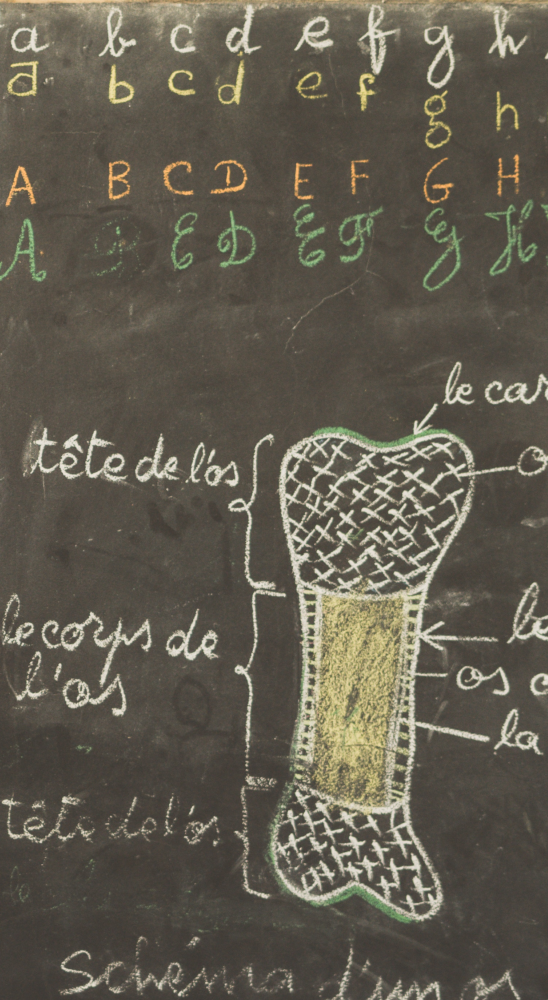 a b c d e f g h
a b c d e f g h
A B C D E F G H
A B C D E F G H
le car
tête de l'os
o
le corps de
l'os
le
os c
la
tête de l'os
Schéma d'un os